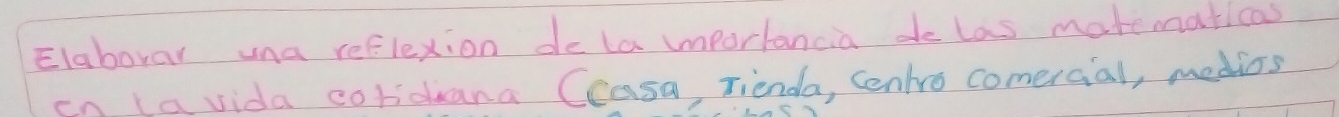 Elaborar una reflexion de la importancia de las matematicas
en la vida cotidiana (casa, Tienda, centro comercial, medios